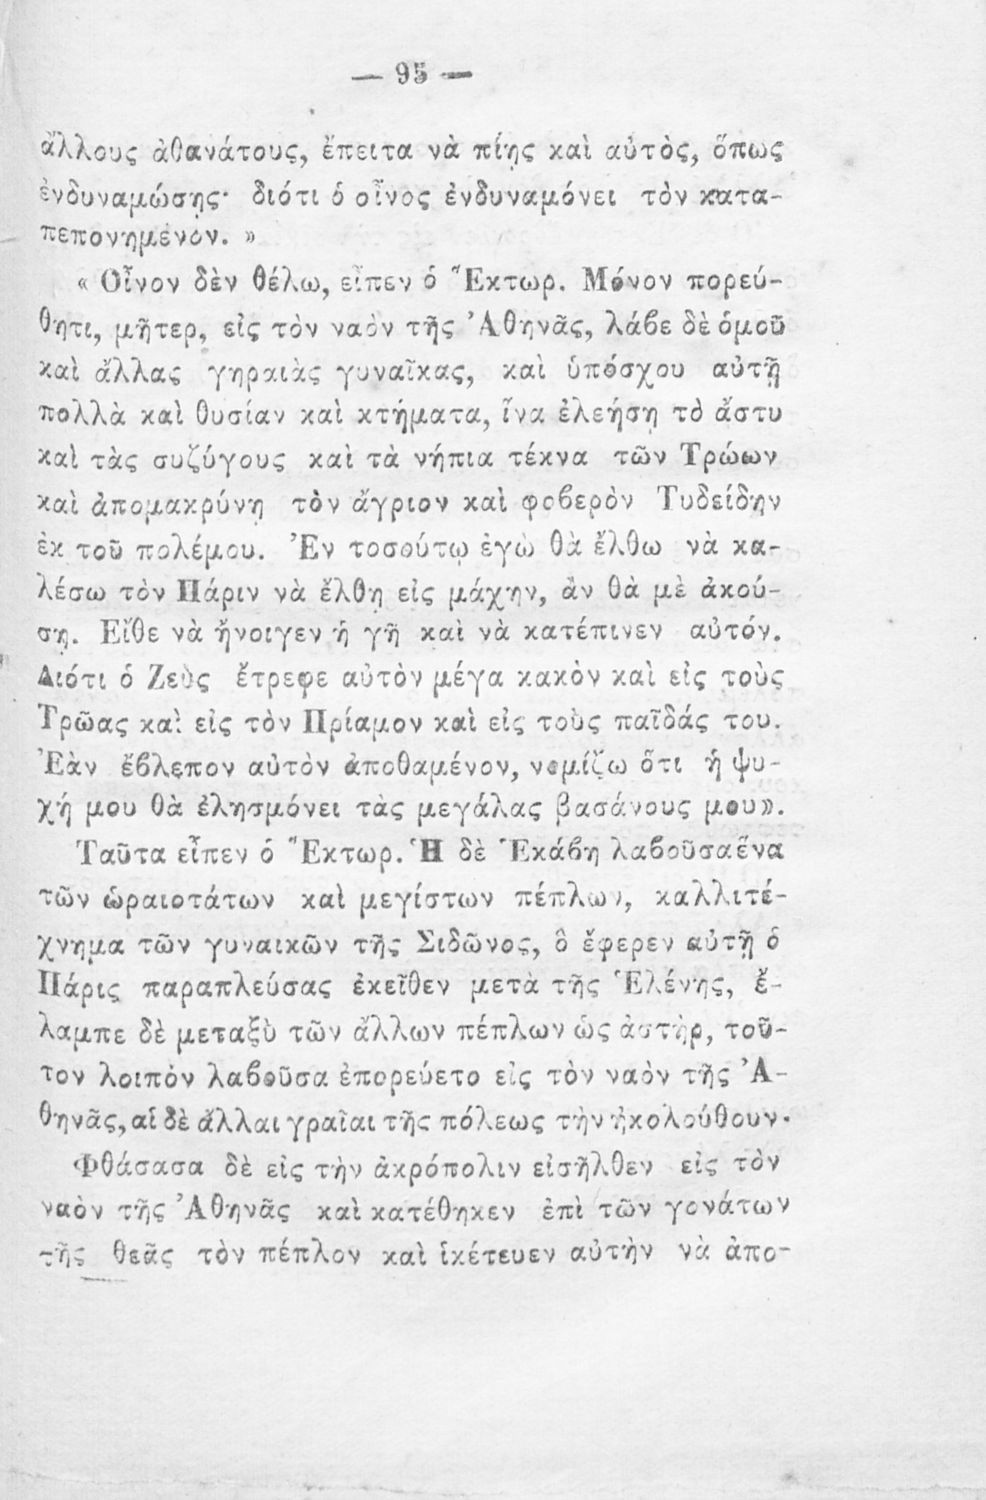 — 95 —
ἄλλους ἀθανάτους, ἔπειτα νὰ πίῃς καὶ αὐτὸς, ὅπως
ἐνδυναμώσῃς· διότι ὁ οἶνος ἐνδυναμόνει τὸν κατα-
πεπονημένον. »
« Οἶνον δὲν θέλω, εἶπεν ὁ Ἕκτωρ. Μόνον πορεύ-
θητι, μῆτερ, εἰς τὸν ναὸν τῆς Ἀθηνᾶς, λάβε δὲ ὁμοῦ
καὶ ἄλλας γηραιὰς γυναῖκας, καὶ ὑπόσχου αὐτῇ
πολλὰ καὶ θυσίαν καὶ κτήματα, ἵνα ἐλεήσῃ τὸ ἄστυ
καὶ τὰς συζύγους καὶ τὰ νήπια τέκνα τῶν Τρώων
καὶ ἀπομακρύνῃ τὸν ἄγριον καὶ φοβερὸν Τυδείδην
ἐκ τοῦ πολέμου. Ἐν τοσούτῳ ἐγὼ θὰ ἔλθω νὰ κα-
λέσω τὸν Πάριν νὰ ἔλθῃ εἰς μάχην, ἀν θὰ μὲ ἀκού-
σῃ. Εἴθε νὰ ἤνοιγεν ἡ γῆ καὶ νὰ κατέπινεν αὐτόν.
Διότι ὁ Ζεὺς ἔτρεφε αὐτὸν μέγα κακὸν καὶ εἰς τοὺς
Τρῶας καὶ εἰς τὸν Πρίαμον καὶ εἰς τοὺς παῖδάς του.
Ἐὰν ἔβλεπον αὐτὸν ἀποθαμένον, νομίζω ὅτι ἡ ψυ-
χή μου θὰ ἐλησμόνει τὰς μεγάλας βασάνους μου».
Ταῦτα εἶπεν ὁ Ἕκτωρ. Ἡ δὲ Ἑκάβη λαβοῦσα ἕνα
τῶν ὡραιοτάτων καὶ μεγίστων πέπλων, καλλιτέ-
χνημα τῶν γυναικῶν τῆς Σιδῶνος, ὃ ἔφερεν αὐτῇ ὁ
Πάρις παραπλεύσας ἐκεῖθεν μετὰ τῆς Ἑλένης, ἔ-
λαμπε δὲ μεταξὺ τῶν ἄλλων πέπλων ὡς ἀστὴρ, τοῦ-
τον λοιπὸν λαβοῦσα ἐπορεύετο εἰς τὸν ναὸν τῆς Ἀ-
θηνᾶς, αἱ δὲ ἄλλαι γραῖαι τῆς πόλεως τὴν ἠκολούθουν.
Φθάσασα δὲ εἰς τὴν ἀκρόπολιν εἰσῆλθεν εἰς τὸν
ναὸν τῆς Ἀθηνᾶς καὶ κατέθηκεν ἐπὶ τῶν γονάτων
τῆς θεᾶς τὸν πέπλον καὶ ἱκέτευεν αὐτὴν νὰ ἀπο-